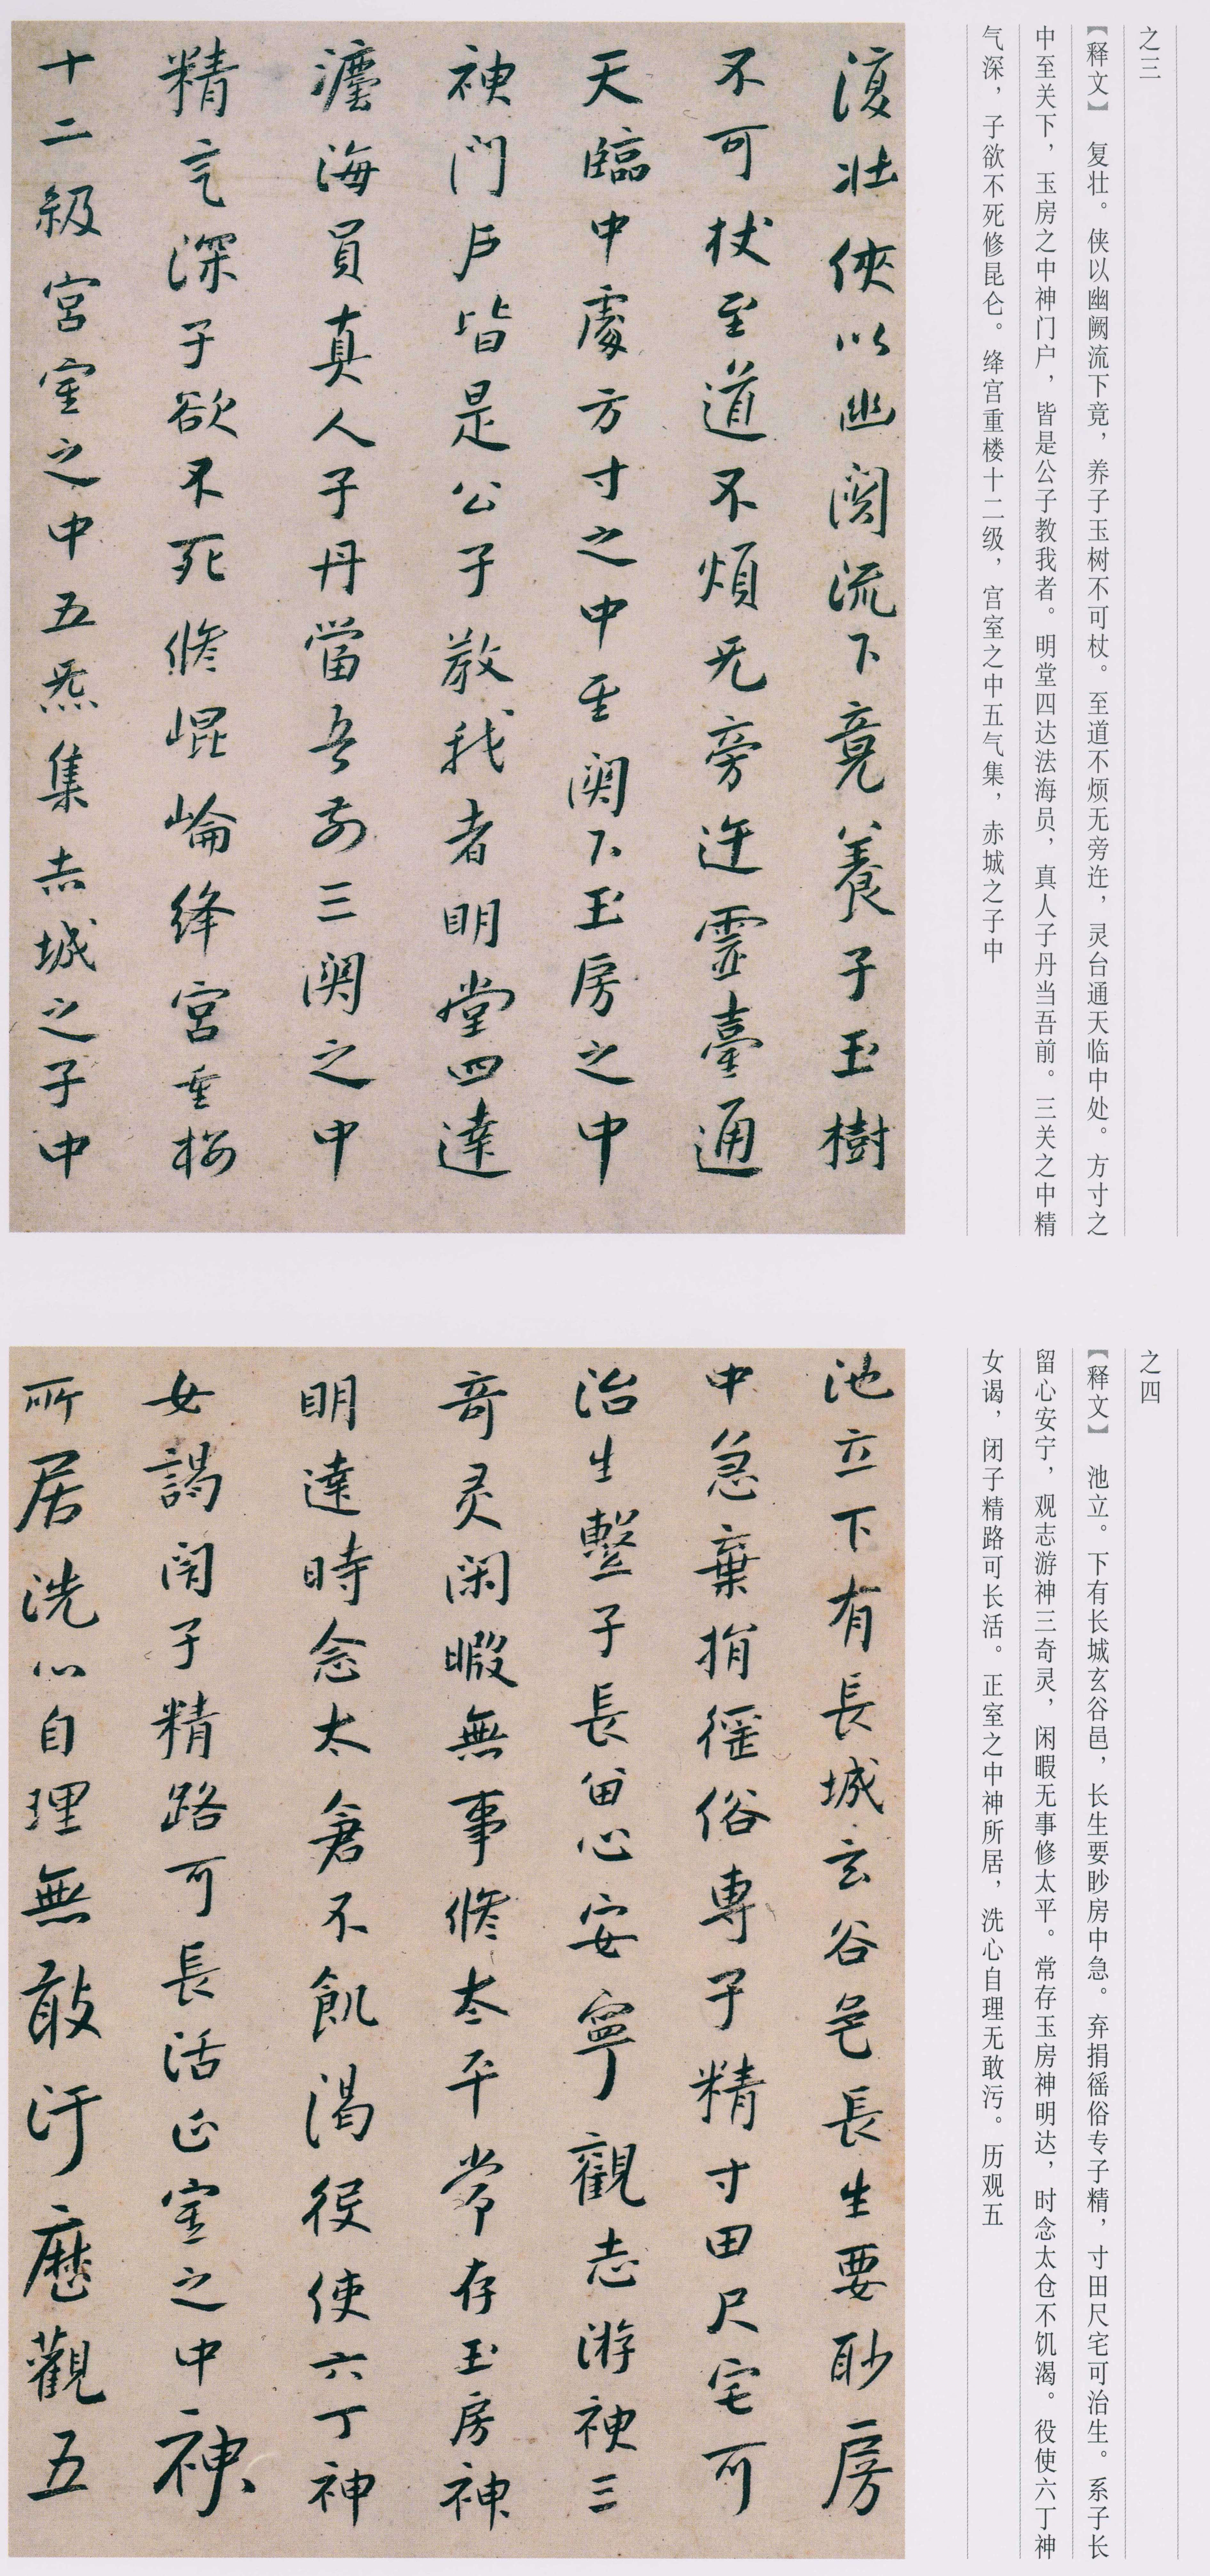 之三
【释文】　复壮。侠以幽阙流下竟，养子玉树不可杖。至道不烦无旁迕，灵台通天临中处。方寸之
中至关下，玉房之中神门户，皆是公子教我者。明堂四达法海员，真人子丹当吾前。三关之中精
气深，子欲不死修昆仑。绛宫重楼十二级，宫室之中五气集，赤城之子中
復壮侠以幽闕流下竟養子玉樹
不可杖至道不煩无旁迕靈臺通
天臨中處方寸之中至関下玉房之中
神門戶皆是公子教我者明堂四達
灋海員真人子丹當吾前三関之中
精气深子欲不死脩崐崘绛宮重楼
十二級宮室之中五炁集赤城之子中
之四
【释文】　池立。下有长城玄谷邑，长生要眇房中急。弃捐徭俗专子精，寸田尺宅可治生。系子长
留心安宁，观志游神三奇灵，闲暇无事修太平。常存玉房神明达，时念太仓不饥渴。役使六丁神
女谒，闭子精路可长活。正室之中神所居，洗心自理无敢污。历观五
池立下有長城玄谷邑長生要眇房
中急棄捐徭俗専子精寸田尺宅可
治生繫子長留心安寧觀志游神三
奇灵閑暇無事脩太平常存玉房神
明達時念太倉不飢渴役使六丁神
女謁閇子精路可長活正室之中神
所居洗心自理無敢汙歷觀五